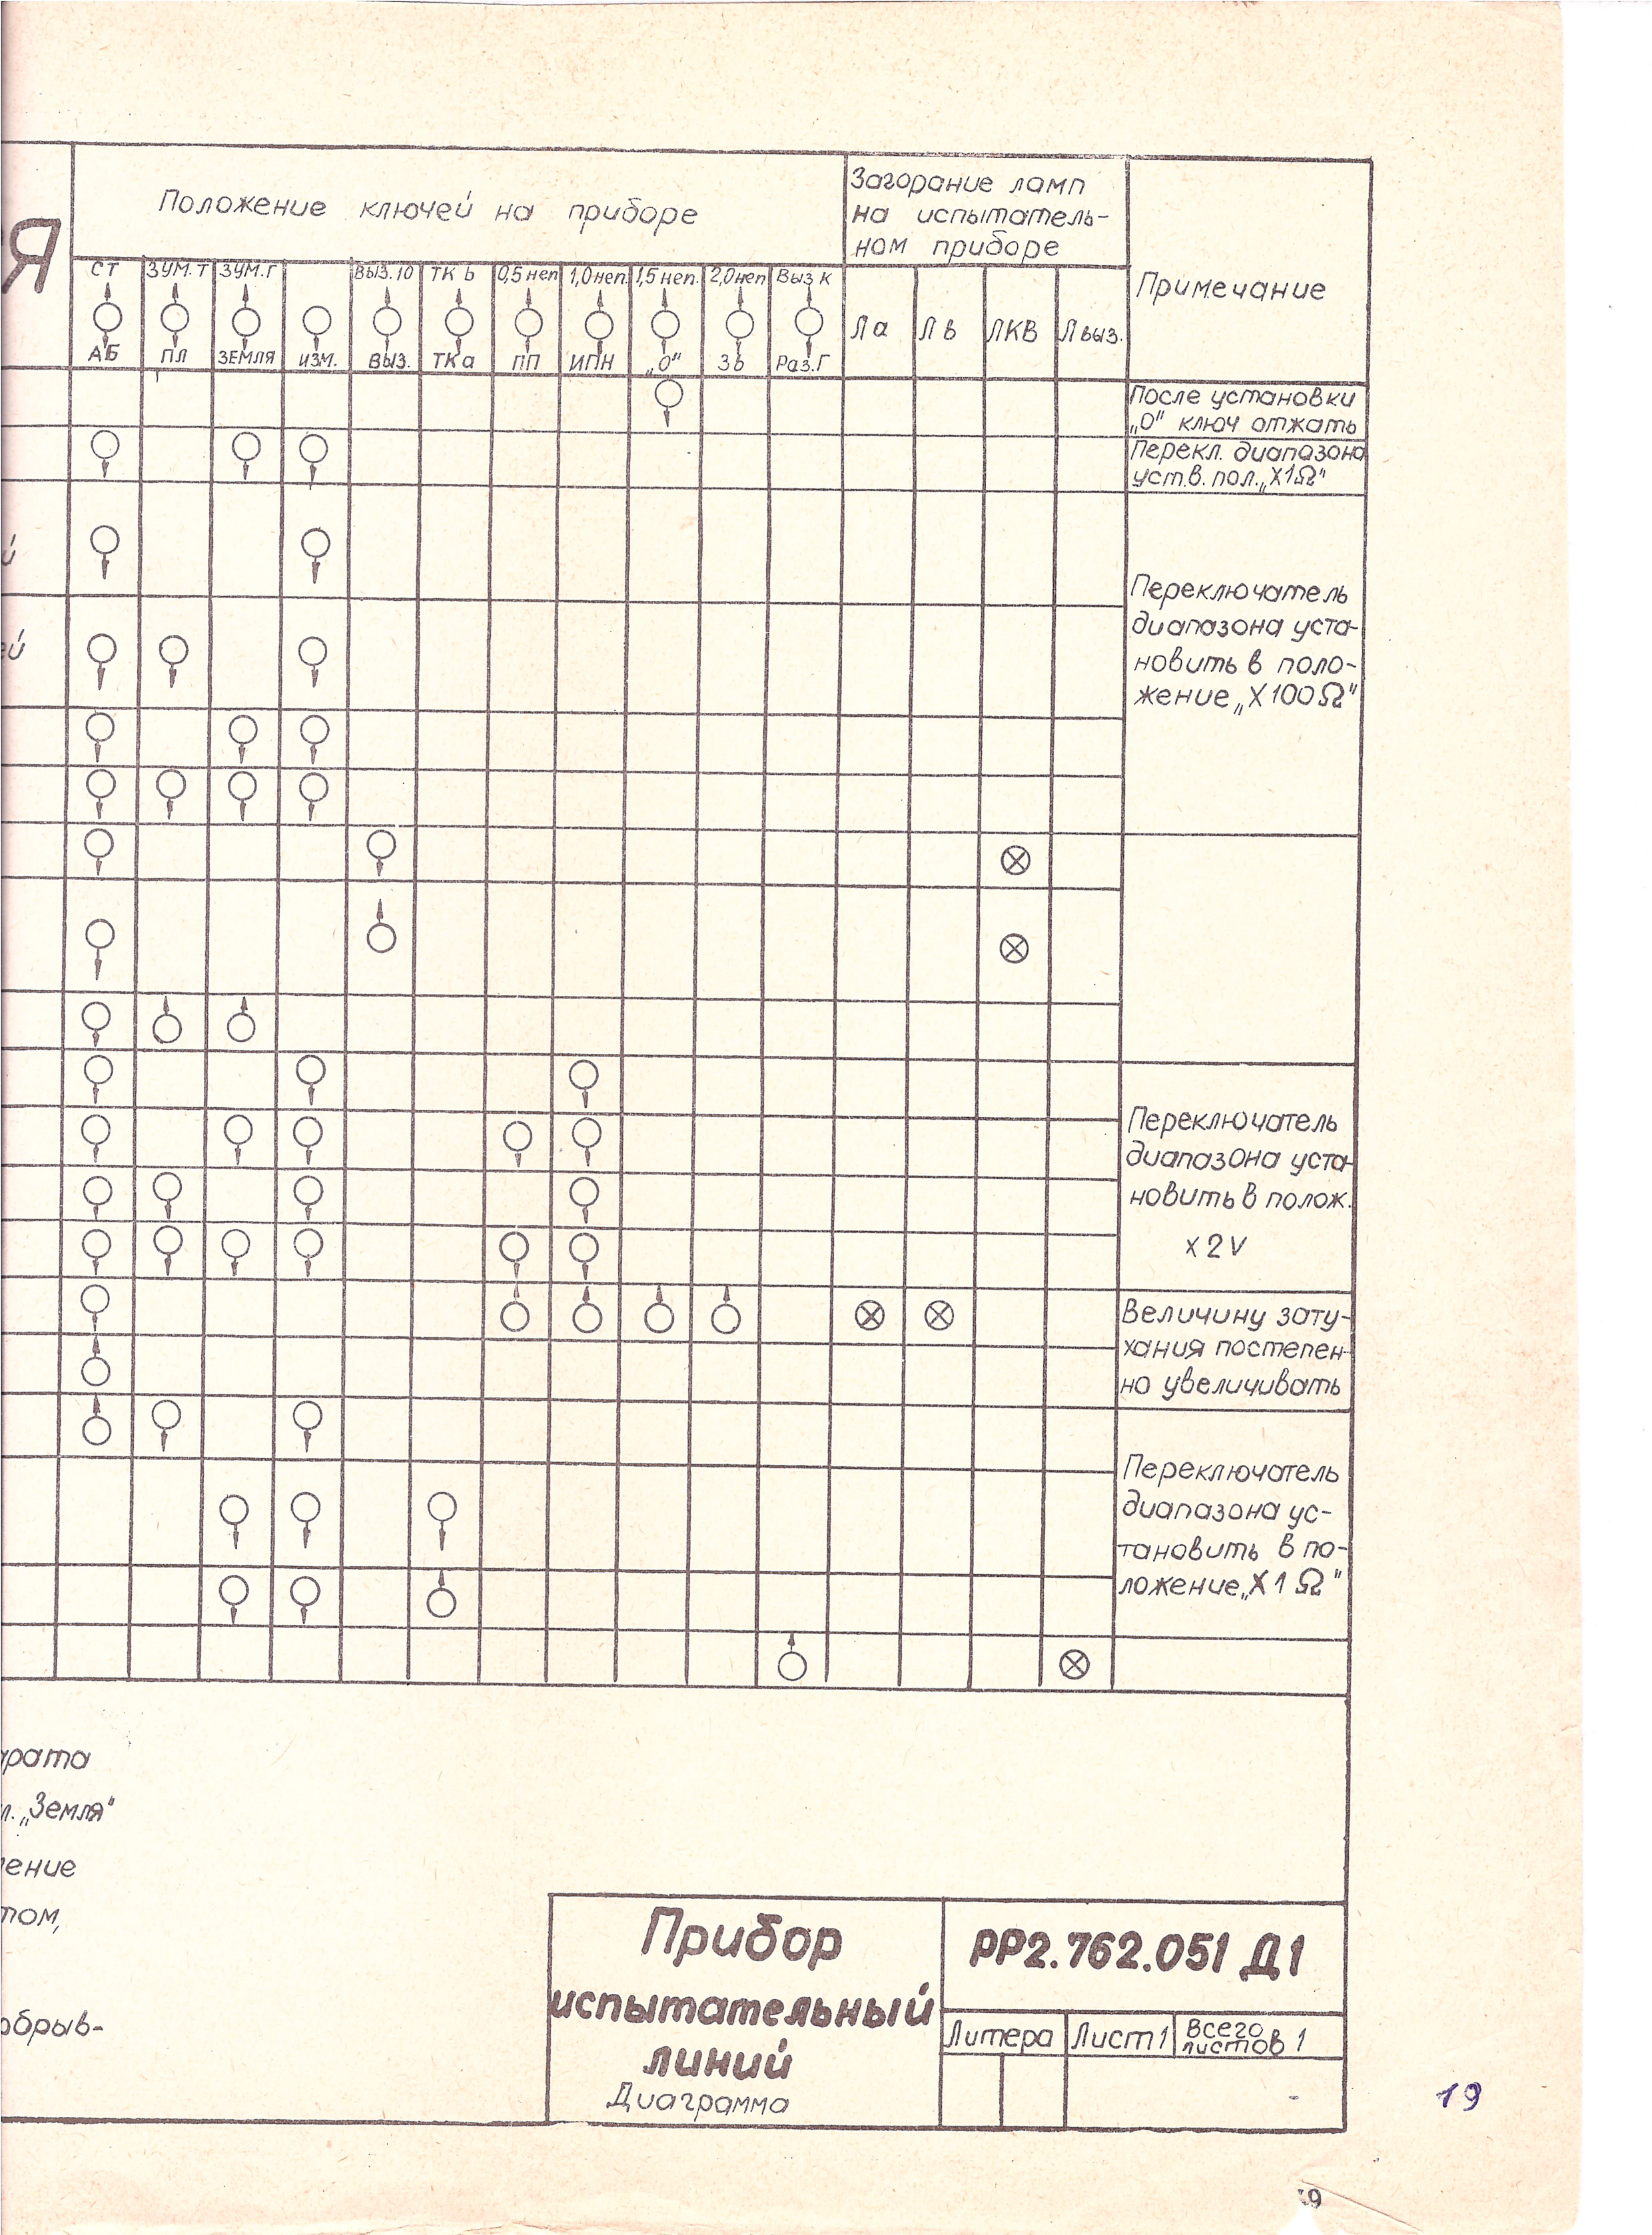 Я
Положение ключей на приборе
Загорание ламп
на испытатель-
ном приборе
Примечание
СТ ЗУМ.Т ЗУМ.Г ВЫЗ.10 ТК b 0,5 неп 1,0 неп. 1,5 неп. 2,0 неп Выз К
АБ ПЛ ЗЕМЛЯ ИЗМ. ВЫЗ. ТК а ПП ИПН „0" Зb Раз.Г
Ла Лв ЛКВ Лвыз.
После установки
„0" ключ отжать
Перекл. диапазона
уст.в. пол. „Х1Ω"
й
ей
Переключатель
диапазона уста-
новить в поло-
жение „Х100Ω"
Переключатель
диапазона уста-
новить в полож.
х 2 V
Величину зату-
хания постепен-
но увеличивать
Переключатель
диапазона ус-
тановить в по-
ложение „Х1Ω"
арата
л. „Земля"
ление
том,
обрыв-
Прибор
испытательный
линий
Диаграмма
РР2.762.051 Д1
Литера Лист 1 Всего
листов 1
19